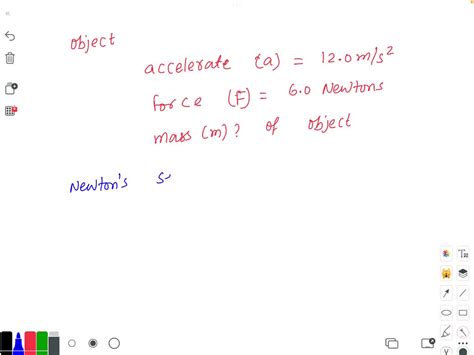 object
accelerate (a) = 12.0 m/s²
force (F) = 6.0 Newtons
mass (m) ? of object
Newton's s